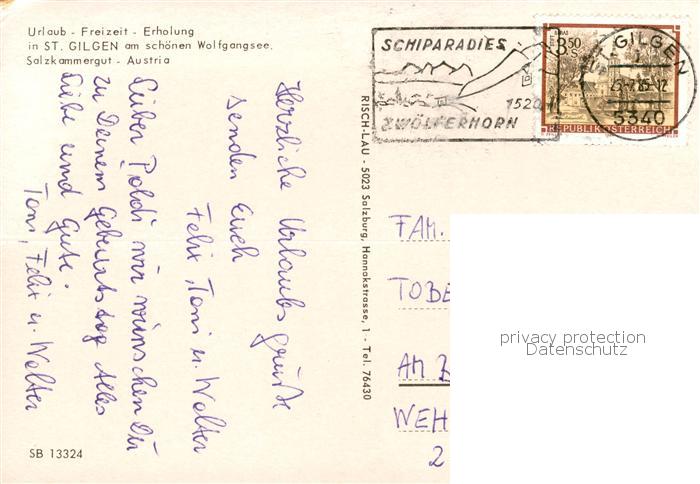 Urlaub - Freizeit - Erholung
in ST. GILGEN am schönen Wolfgangsee.
Salzkammergut - Austria
SCHIPARADIES
1520 m
ZWÖLFERHORN
3.50
S
REPUBLIK ÖSTERREICH
GILGEN
5340
Herzliche Urlaubsgrüße
senden Euch
Felix, Toni u. Walter
Lieber Poldi wir wünschen Dir
zu Deinem Geburtstag Alles
Liebe und Gute.
Toni, Felix u. Walter
RISCH-LAU - 5023 Salzburg, Hannakstrasse, 1 - Tel. 76430
FAM.
TOBE
AM
WEH
2
privacy protection
Datenschutz
SB 13324